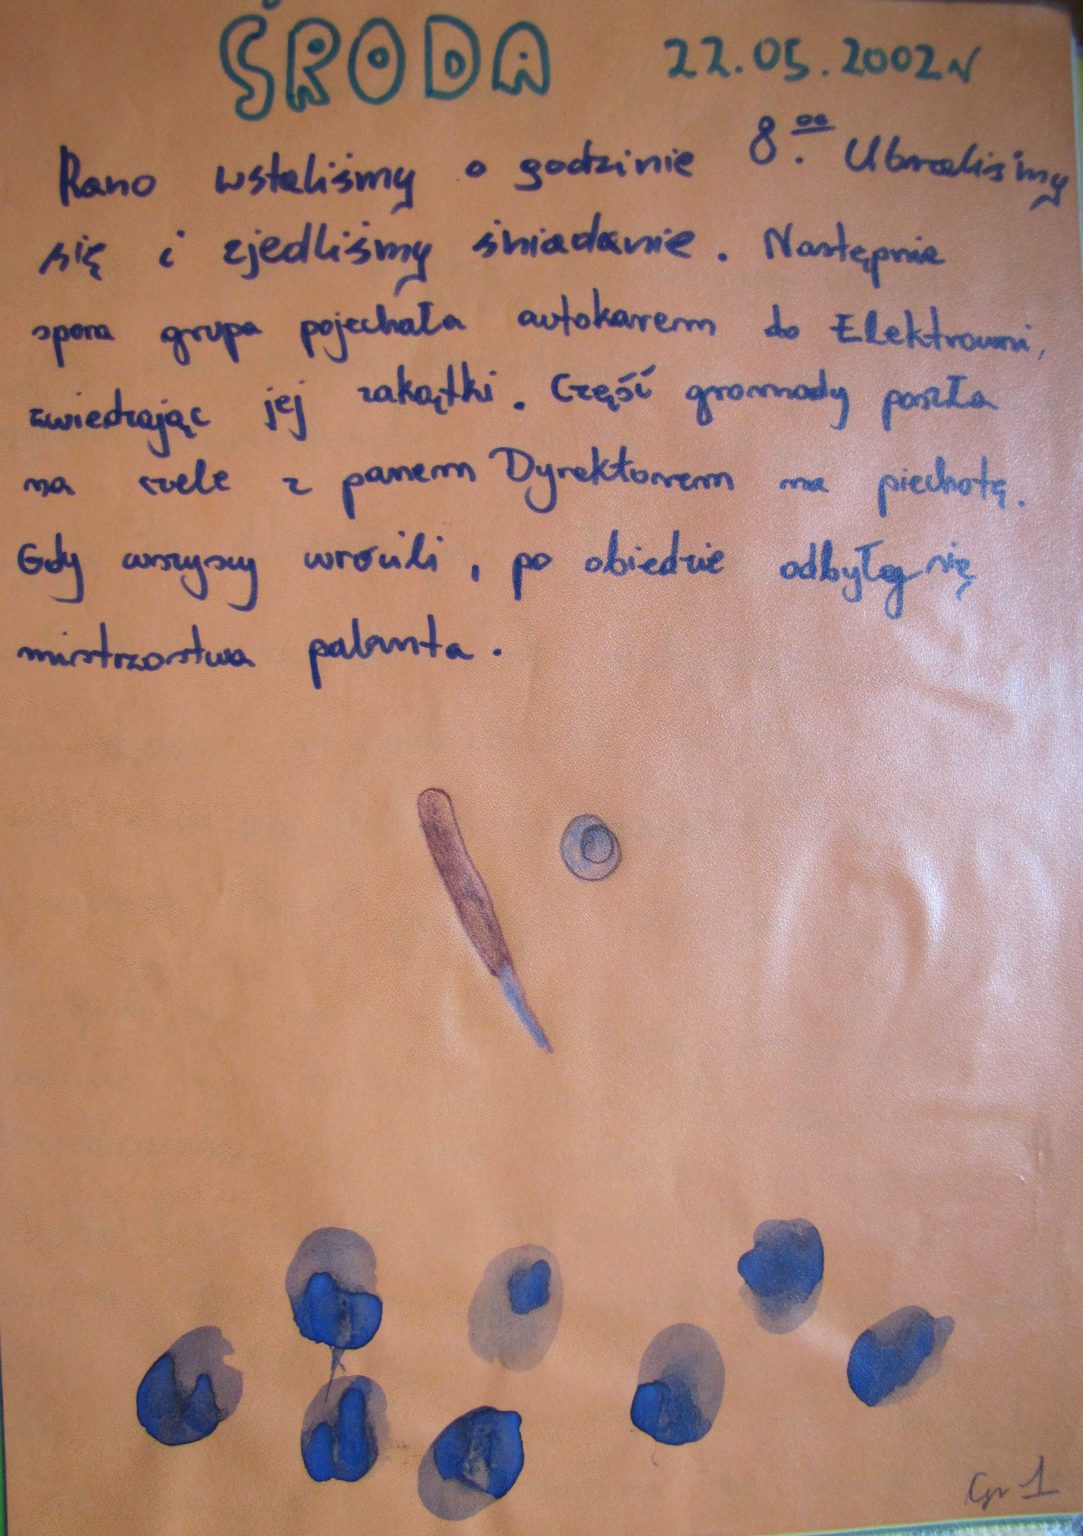 ŚRODA 22.05.2002r
Rano wstaliśmy o godzinie 8.00 Ubraliśmy
się i zjedliśmy śniadanie. Następnie
spora grupa pojechała autokarem do Elektrowni,
zwiedzając jej zakątki. Część gromady poszła
na czele z panem Dyrektorem na piechotę.
Gdy wszyscy wrócili, po obiedzie odbyłeg się
mistrzostwa palanta.
Gr 1